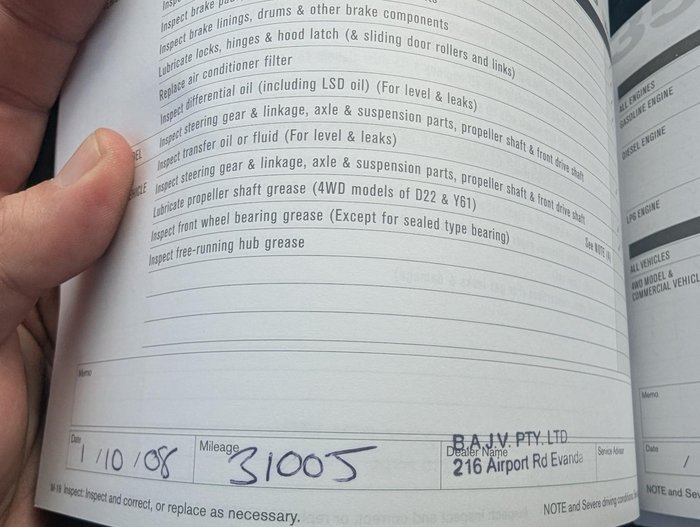 Inspect brake
Inspect brake linings, drums & other brake components
Lubricate locks, hinges & hood latch (& sliding door rollers and links)
Replace air conditioner filter
Inspect differential oil (including LSD oil) (For level & leaks)
Inspect steering gear & linkage, axle & suspension parts, propeller shaft & front drive shaft
Inspect transfer oil or fluid (For level & leaks)
Inspect steering gear & linkage, axle & suspension parts, propeller shaft & front drive shaft
Lubricate propeller shaft grease (4WD models of D22 & Y61)
Inspect front wheel bearing grease (Except for sealed type bearing)
See NOTE
Inspect free-running hub grease
Memo
Date
1/10/08
Mileage
31005
B.A.J.V. PTY. LTD
Dealer Name
216 Airport Rd Evanda
Service Advisor
M-18 Inspect: Inspect and correct, or replace as necessary.
NOTE and Severe driving conditions
ALL ENGINES
GASOLINE ENGINE
DIESEL ENGINE
LPG ENGINE
ALL VEHICLES
4WD MODEL &
COMMERCIAL VEHICL
Memo
Date
/
NOTE and Sev